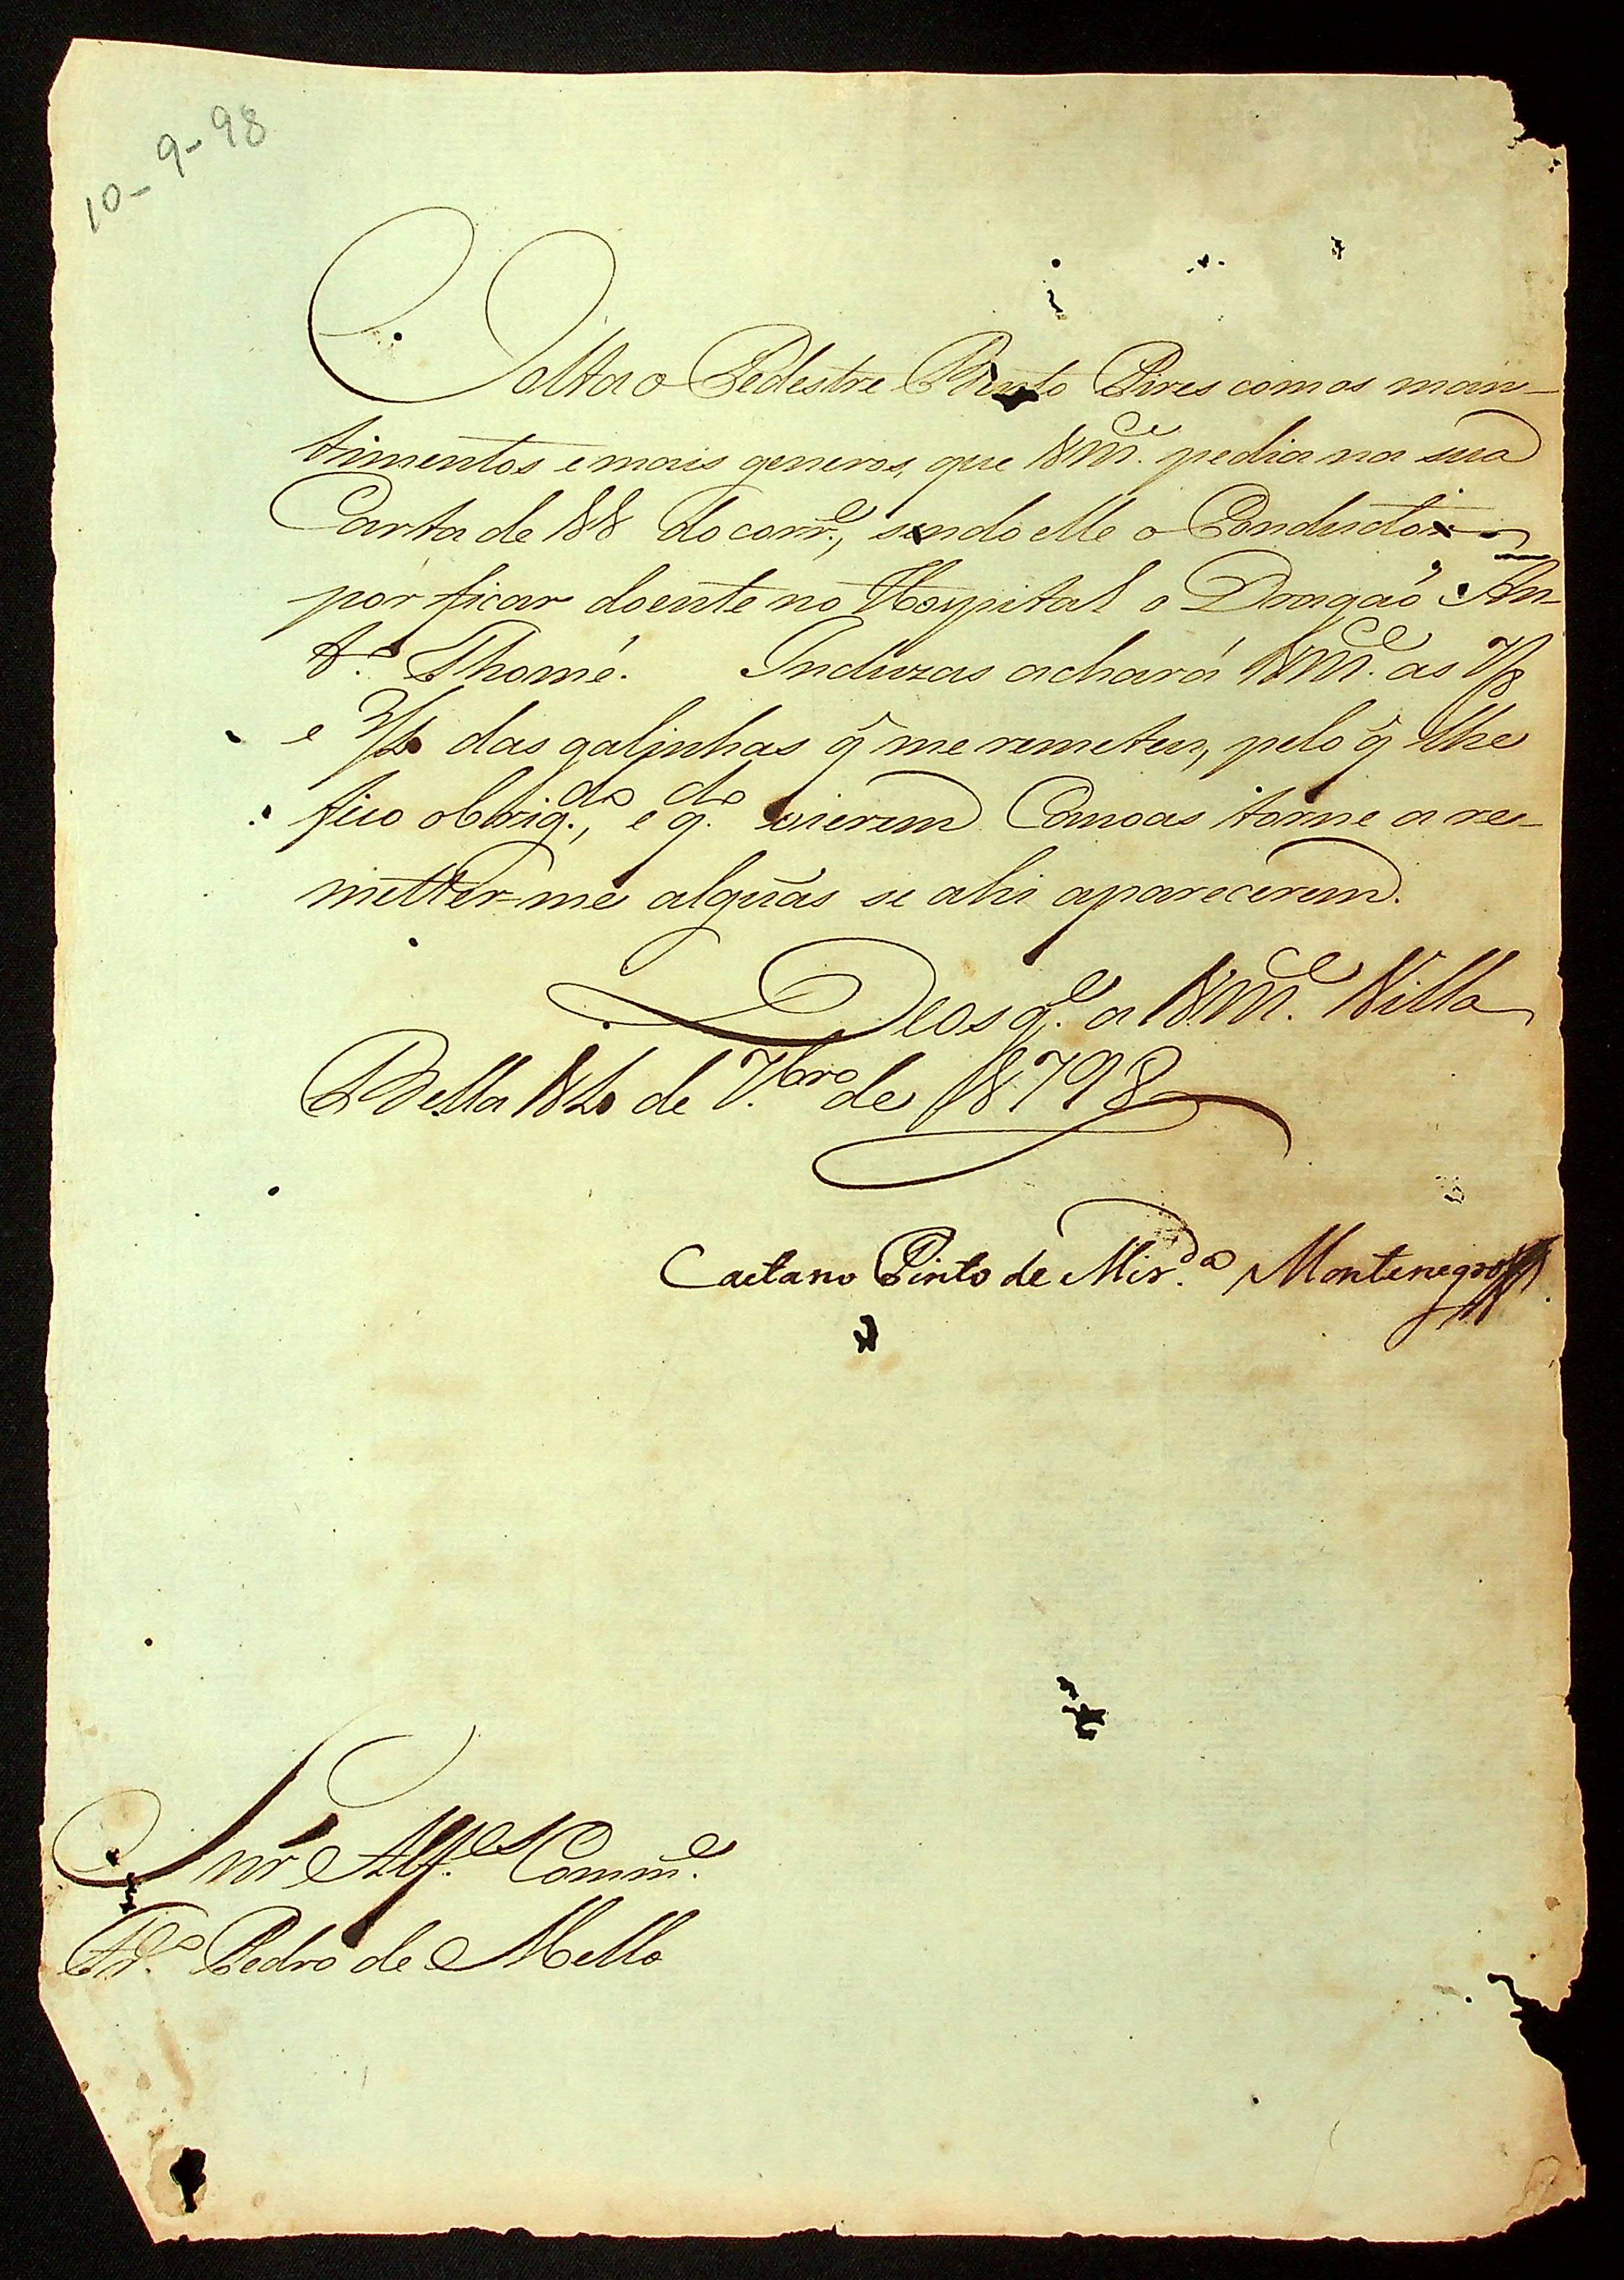 10-9-98
Volta o Pedestre Pinto Pires com os man-
timentos e mais generos, que VM.ce pedia na sua
Carta de 11 do corr.e, sendo elle o Conductor
por ficar doente no Hospital o Dragão An-
t.o Thomé. Incluzas achará VM.ce as
e das galinhas q̃ me remeteu, pelo q̃ lhe
fico obrig.do, e q.do vierem Canoas torne a re-
metter-me algũas se ahi aparecerem.
Deos g.e a VM.ce Villa
Bella de 7.bro de 1798
Caetano Pinto de Mir.da Montenegro
Snr̃ Alf.es Comm.e
Pedro de Mello